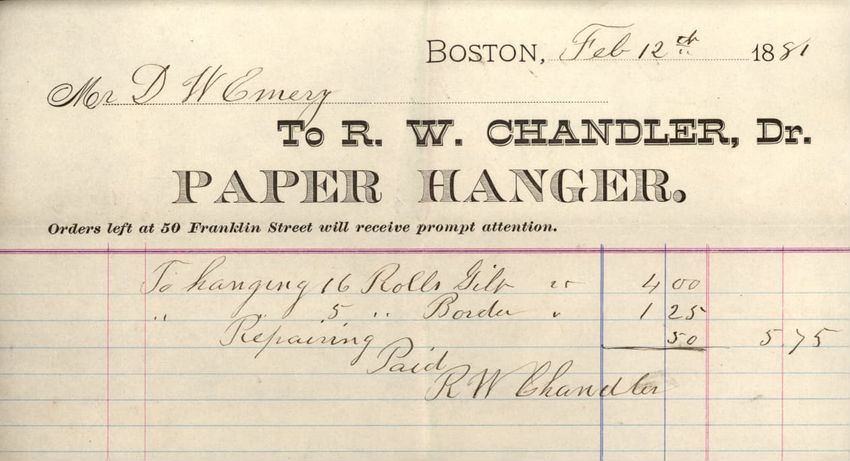 BOSTON, Feb 12th 1881
Mr D W Emery
To R. W. CHANDLER, Dr.
PAPER HANGER.
Orders left at 50 Franklin Street will receive prompt attention.
To hanging 16 Rolls Gilt " 4 00
" " 5 " Border " 1 25
Repairing 50 5 75
Paid
R W Chandler